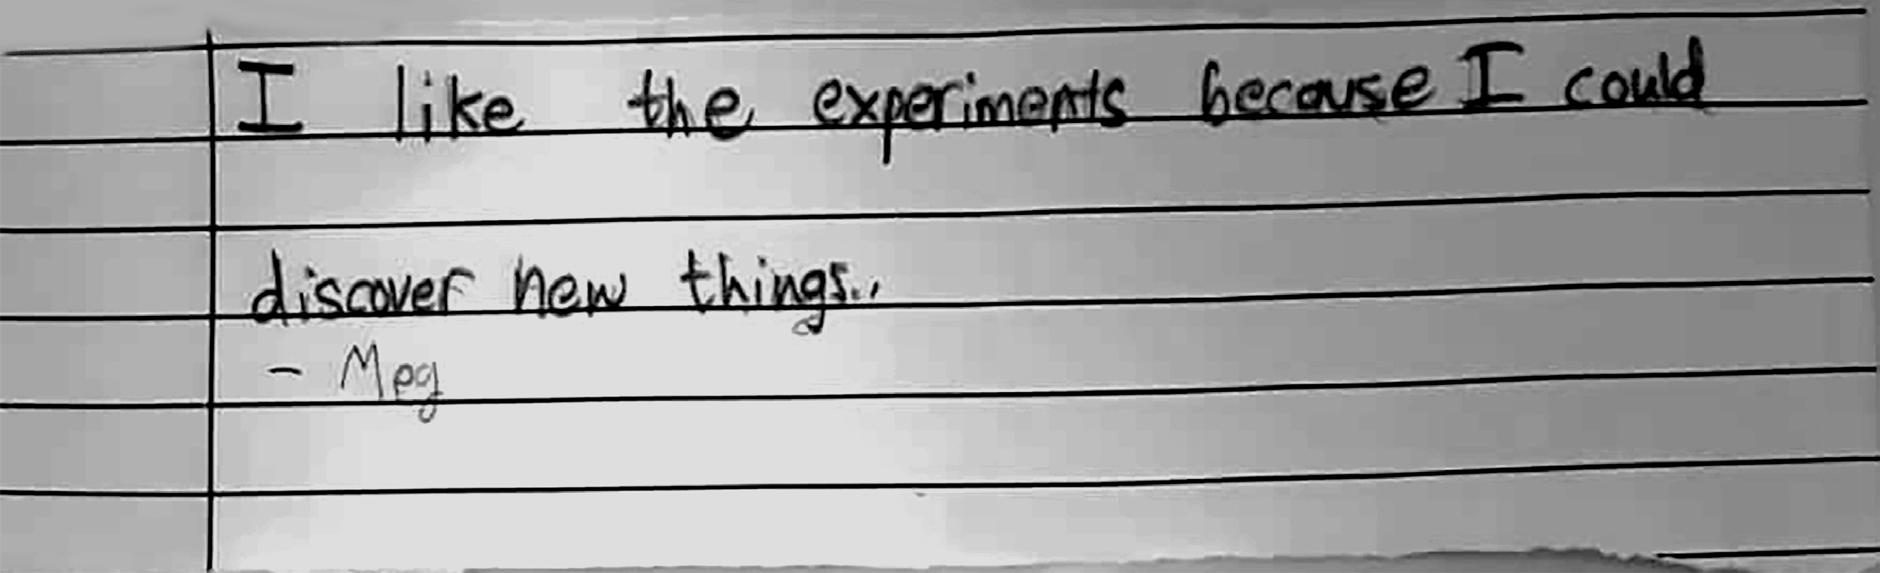 I like the experiments because I could
discover new things..
- Meg